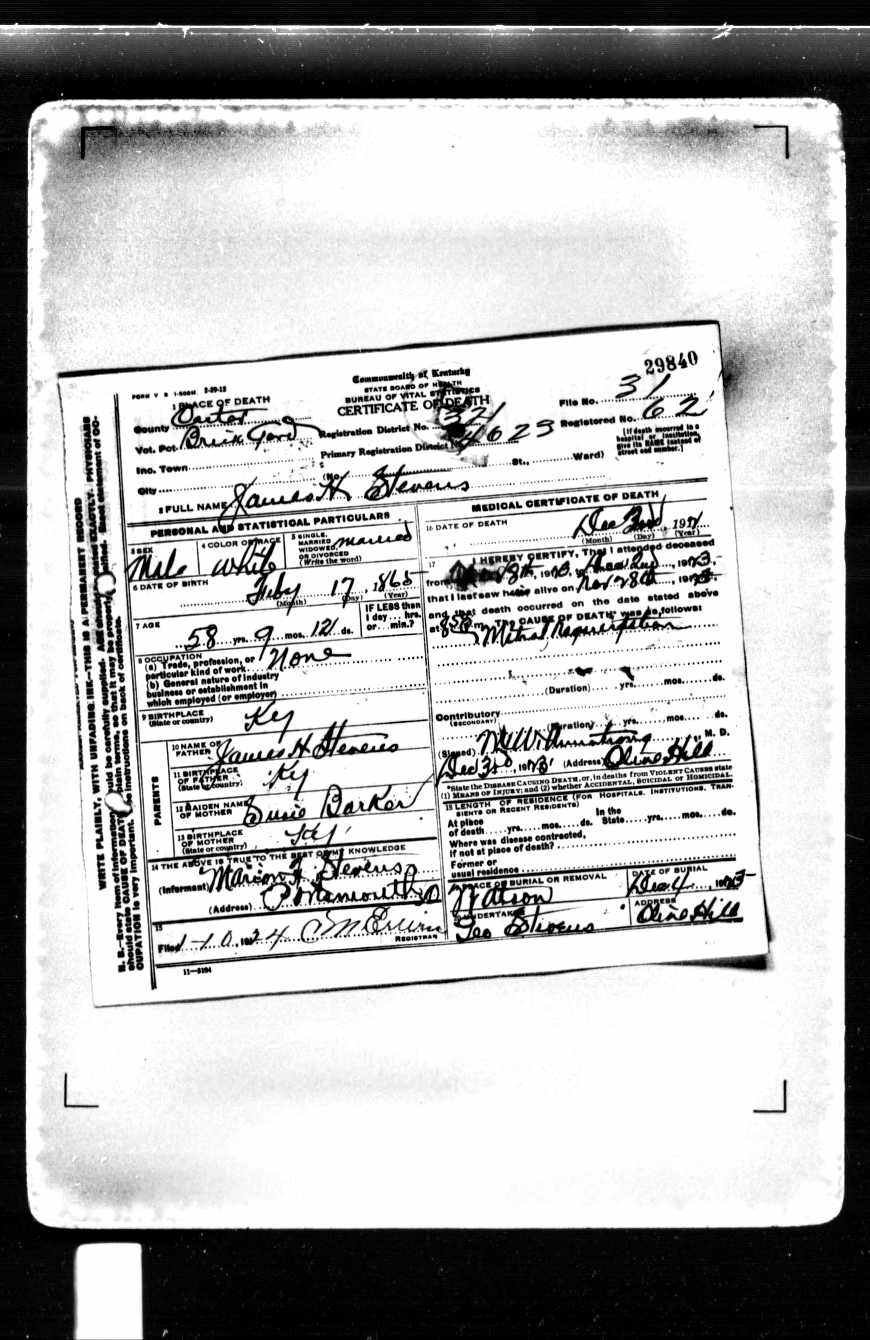 29840
FORM V S 1-500M 2-29-12
Commonwealth of Kentucky
STATE BOARD OF HEALTH
BUREAU OF VITAL STATISTICS
CERTIFICATE OF DEATH
1 PLACE OF DEATH
County Carter
Vot. Pct.
Inc. Town
City
Registration District No. 321
Primary Registration District No. 4623
(No. St., Ward)
File No. 31
Registered No. 62
[If death occurred in a hospital or institution, give its NAME instead of street and number.]
2 FULL NAME James H Stevens
PERSONAL AND STATISTICAL PARTICULARS
3 SEX Male
4 COLOR OR RACE White
5 SINGLE, MARRIED WIDOWED, OR DIVORCED (Write the word) married
6 DATE OF BIRTH Feby 17, 1865
(Month) (Day) (Year)
7 AGE 58 yrs. 9 mos. 12 ds.
IF LESS than 1 day ... hrs. or ... min.?
8 OCCUPATION
(a) Trade, profession, or particular kind of work None
(b) General nature of industry business or establishment in which employed (or employer)
9 BIRTHPLACE (State or country) Ky
PARENTS
10 NAME OF FATHER James H Stevens
11 BIRTHPLACE OF FATHER (State or country) Ky
12 MAIDEN NAME OF MOTHER Susie Barker
13 BIRTHPLACE OF MOTHER (State or country) Ky
14 THE ABOVE IS TRUE TO THE BEST OF MY KNOWLEDGE
(Informant) Marion F. Stevens
(Address) Portsmouth O
15
Filed 1-10, 1924
REGISTRAR
11-3184
MEDICAL CERTIFICATE OF DEATH
16 DATE OF DEATH Dec
(Month) (Day) (Year)
17 I HEREBY CERTIFY, That I attended deceased
from
that I last saw him alive on Nov 28th, 1923
and that death occurred on the date stated above
at m. The CAUSE OF DEATH was as follows:
Mitral Regurgitation
(Duration) yrs. mos. ds.
Contributory (SECONDARY)
(Duration) yrs. mos. ds.
(Signed) Armstrong, M. D.
(Address) Olive Hill
*State the DISEASE CAUSING DEATH, or, in deaths from VIOLENT CAUSES state (1) MEANS OF INJURY; and (2) whether ACCIDENTAL, SUICIDAL or HOMICIDAL.
18 LENGTH OF RESIDENCE (FOR HOSPITALS, INSTITUTIONS, TRANSIENTS OR RECENT RESIDENTS)
At place of death yrs. mos. ds. In the State yrs. mos. ds.
Where was disease contracted, if not at place of death?
Former or usual residence
PLACE OF BURIAL OR REMOVAL Watson
DATE OF BURIAL Dec 4, 1923
UNDERTAKER Geo Stevens
ADDRESS Olive Hill